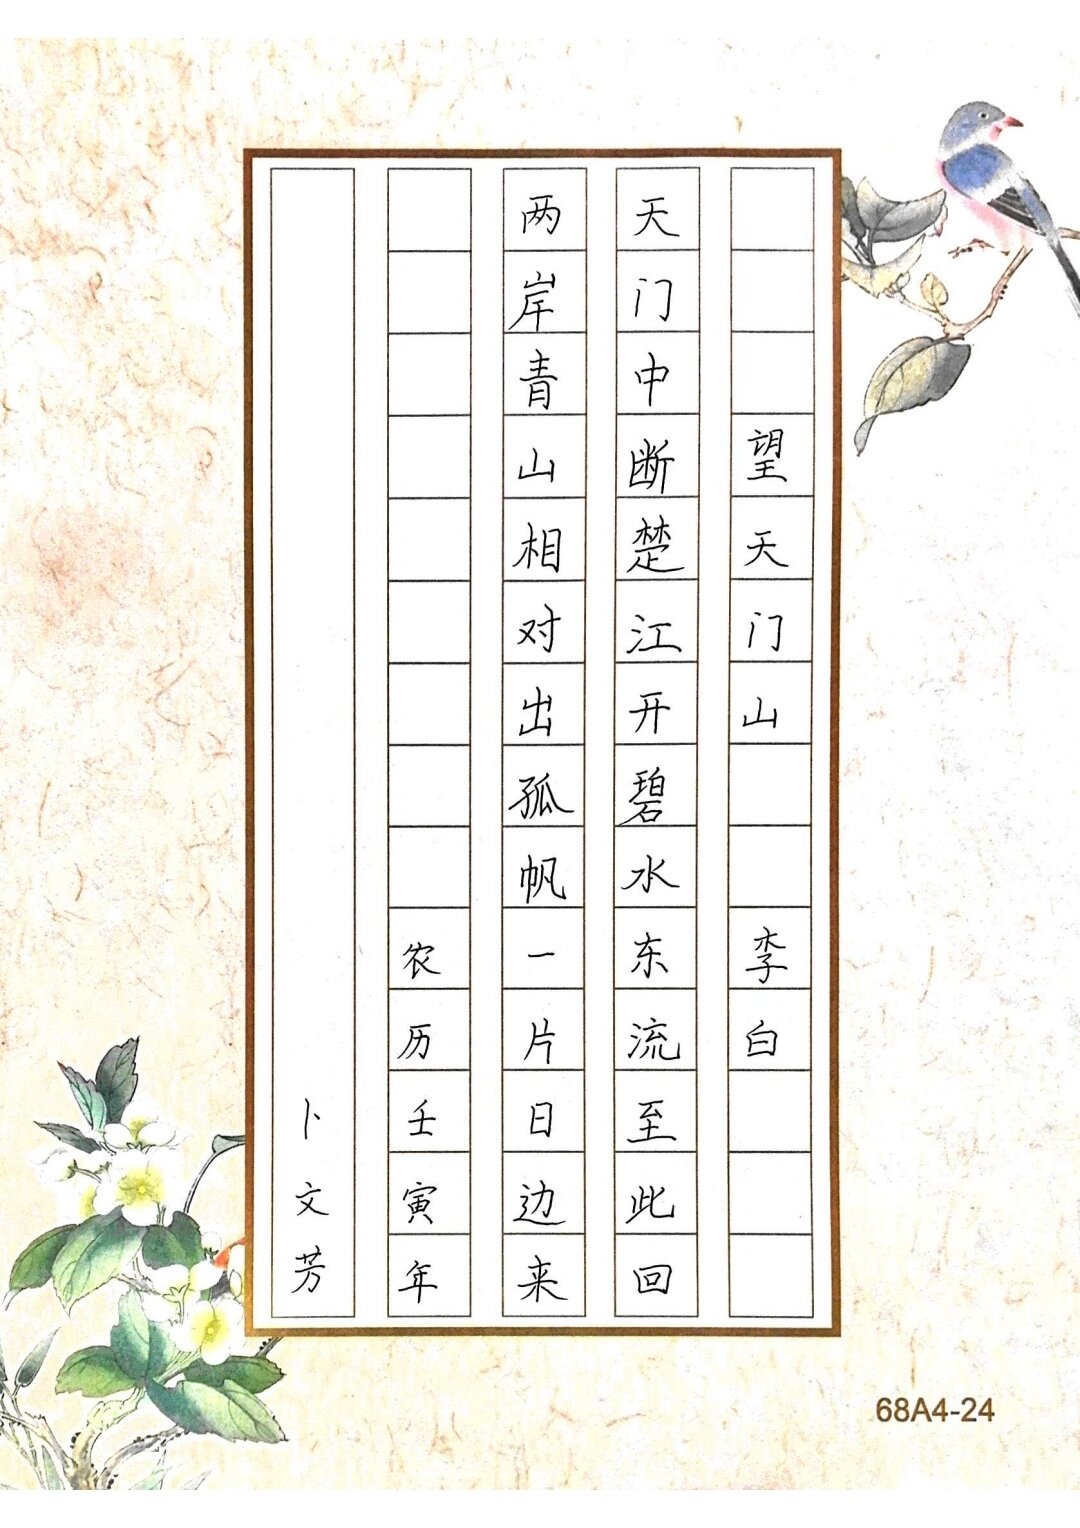 望天门山 李白
天门中断楚江开碧水东流至此回
两岸青山相对出孤帆一片日边来
农历壬寅年
卜文芳
68A4-24